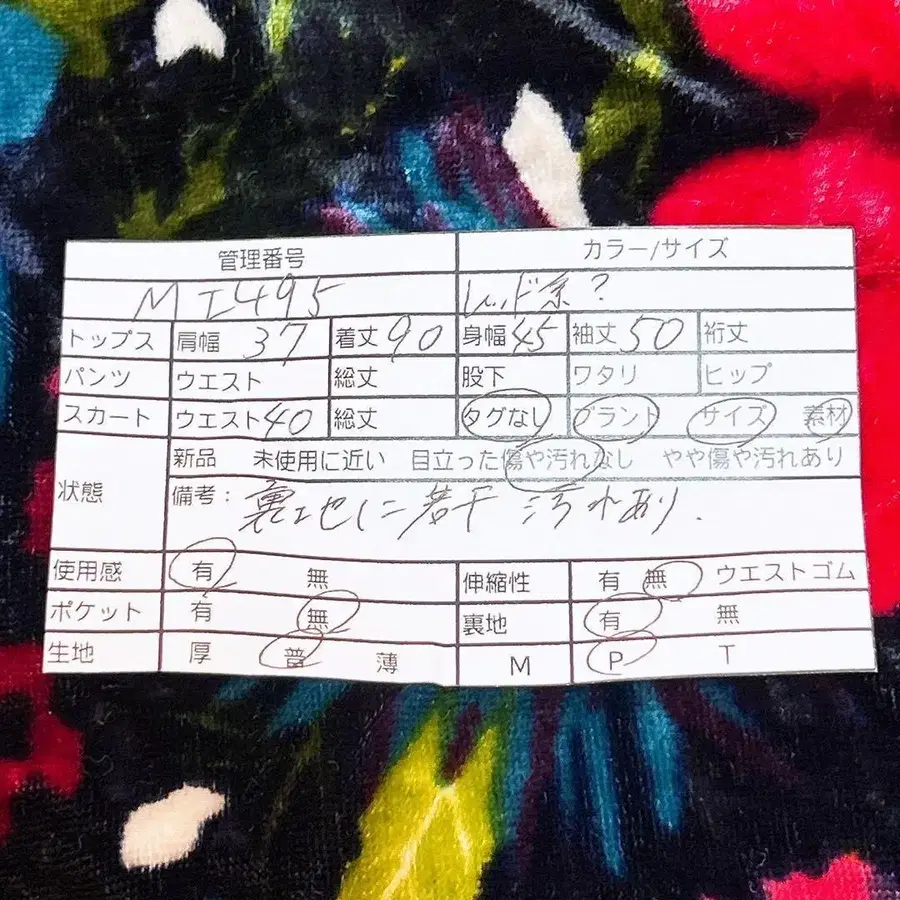 管理番号 カラー/サイズ
MI495 レッド系?
トップス 肩幅 37 着丈 90 身幅 45 袖丈 50 裄丈
パンツ ウエスト 総丈 股下 ワタリ ヒップ
スカート ウエスト 40 総丈 タグなし ブランド サイズ 素材
状態 新品 未使用に近い 目立った傷や汚れなし やや傷や汚れあり
備考: 裏地に若干 汚れあり.
使用感 有 無 伸縮性 有 無 ウエストゴム
ポケット 有 無 裏地 有 無
生地 厚 普 薄 M P T